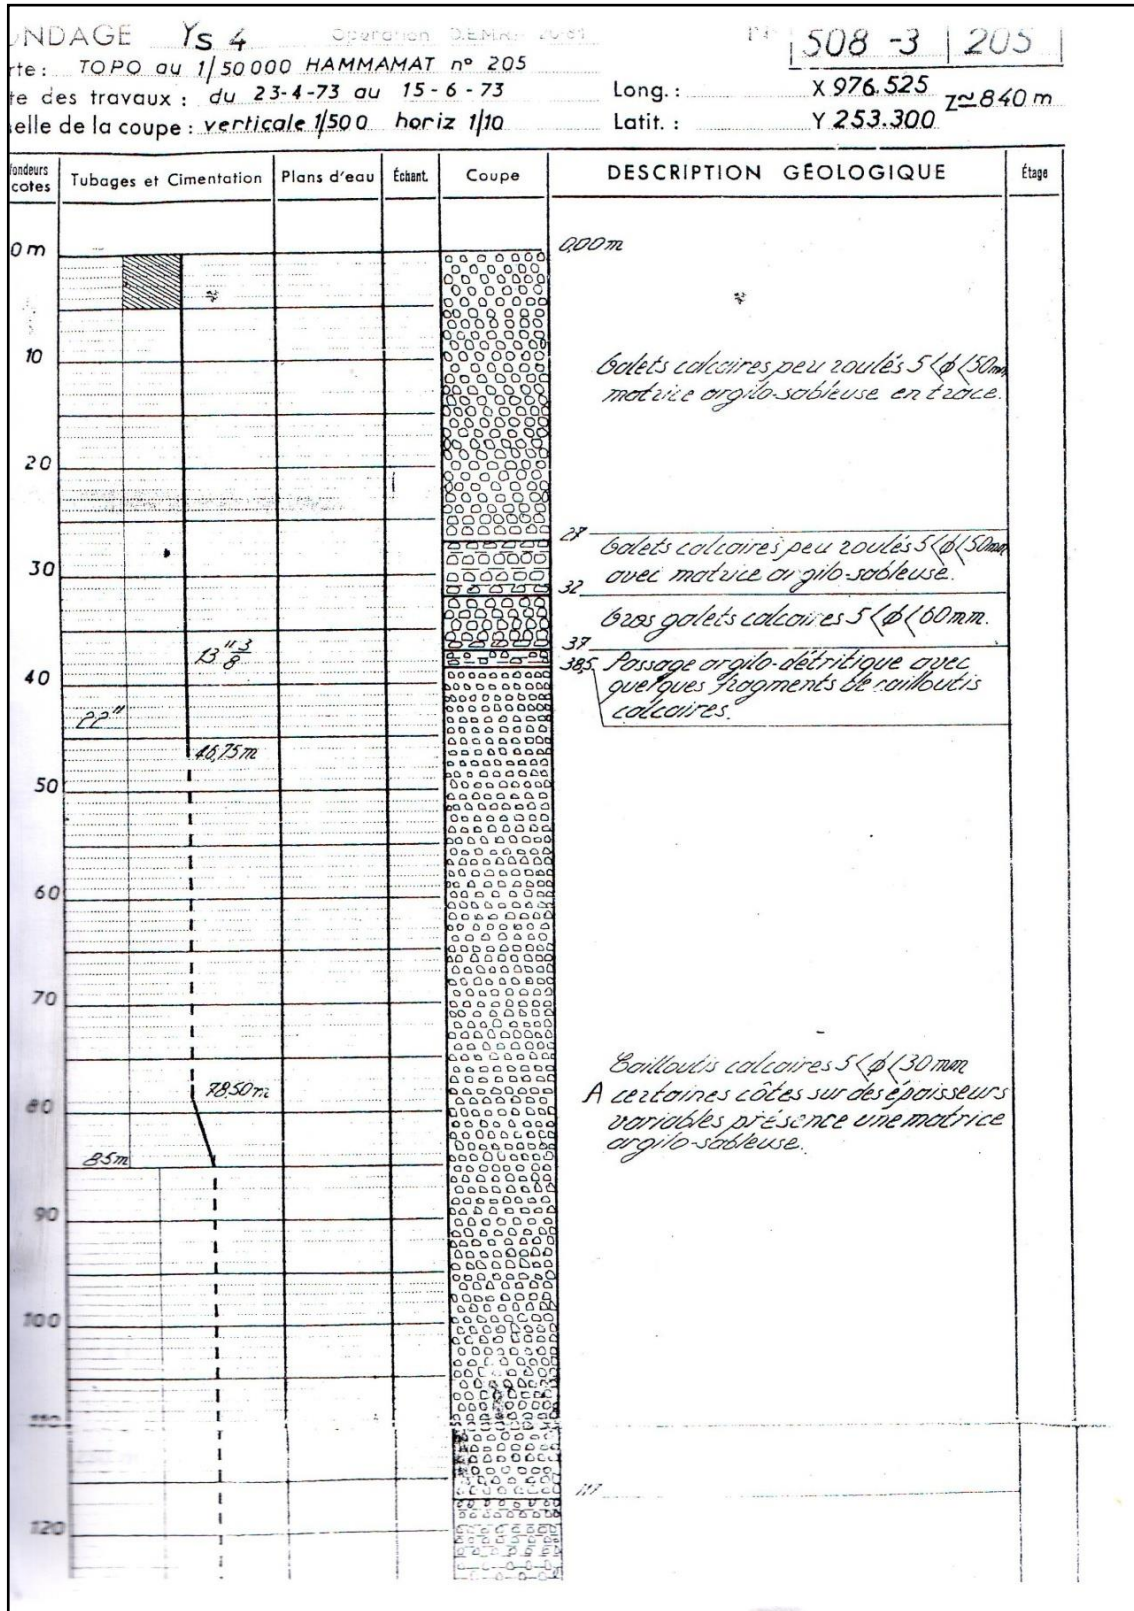 NDAGE Ys 4 Operation D.E.M.R. n° 508-3 205
rte : TOPO au 1/50000 HAMMAMAT n° 205
te des travaux : du 23-4-73 au 15-6-73 Long. : X 976.525 Z≃840 m
elle de la coupe : verticale 1/500 horiz 1/10 Latit. : Y 253.300
fondeurs cotes Tubages et Cimentation Plans d'eau Échant. Coupe DESCRIPTION GÉOLOGIQUE Étage
0 m 0,00 m
10 Galets calcaires peu roulés 5<ϕ<50mm
matrice argilo-sableuse en trace.
20
27
Galets calcaires peu roulés 5<ϕ<50mm
30 avec matrice argilo-sableuse.
32
Gros galets calcaires 5<ϕ<60mm.
37
13"3/8 38,5 Passage argilo-détritique avec
40 quelques fragments de cailloutis
22" calcaires.
46,75m
50
60
70
Cailloutis calcaires 5<ϕ<30mm
78,50m A certaines côtes sur des épaisseurs
80 variables présence une matrice
85m argilo-sableuse.
90
100
110
117
120